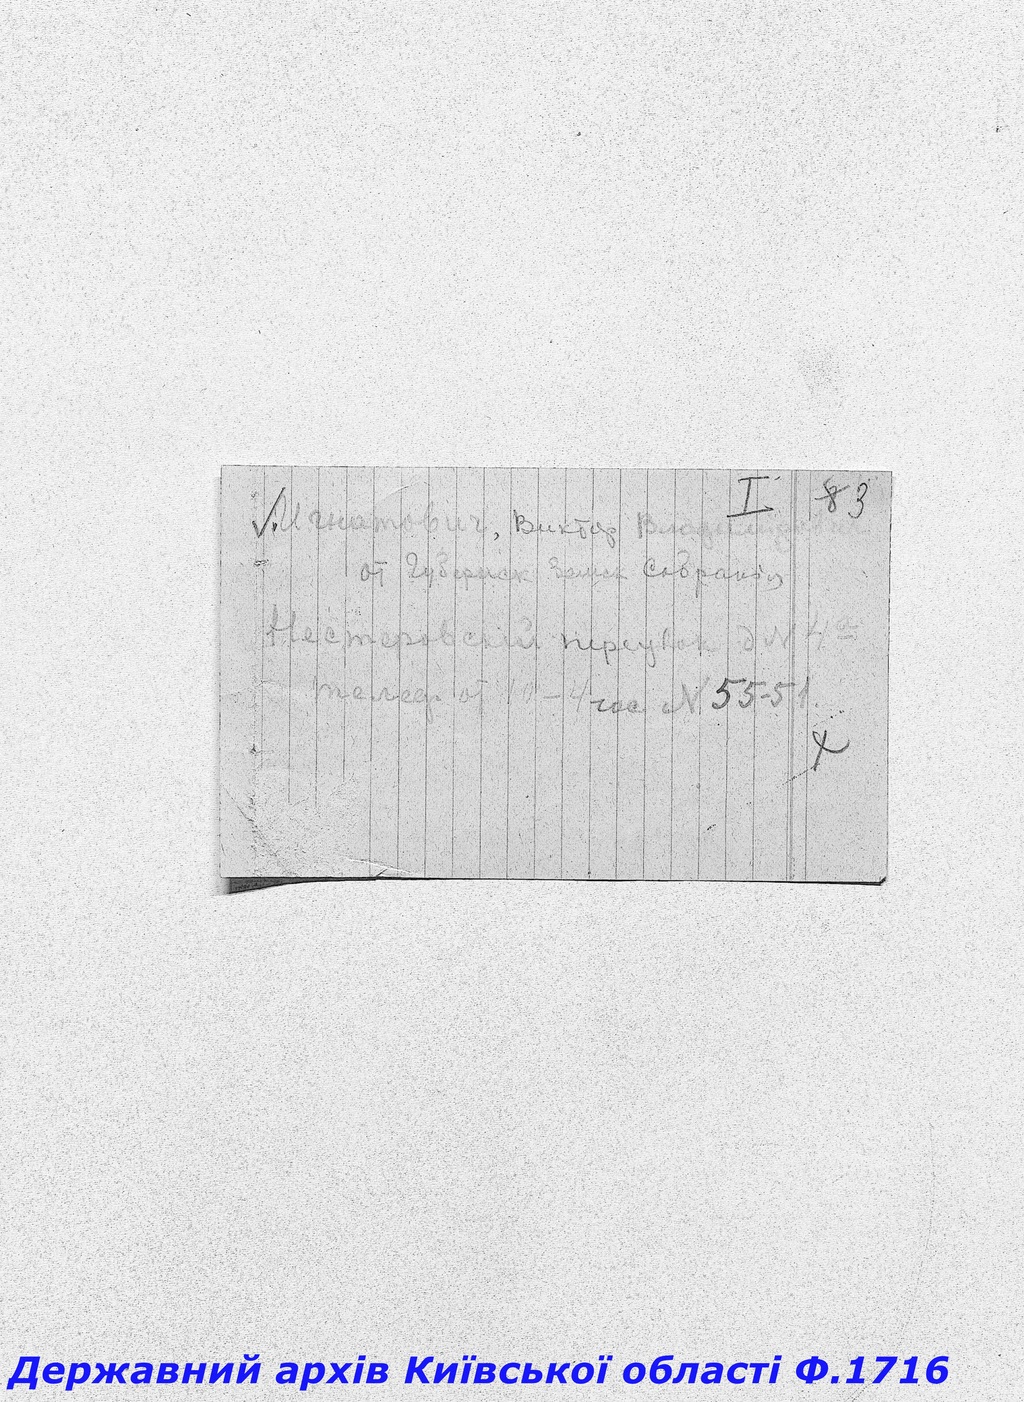 I. 83
Игнатович, Виктор Владимирович
от Губернск Земск Собрания
Нестеровскій переулок д N 4а
телеф от 10-4 час N 55-51.
Державний архів Київської області Ф.1716